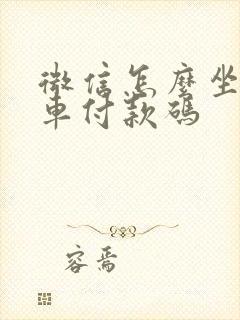 微信怎麼坐
車付款碼
容焉